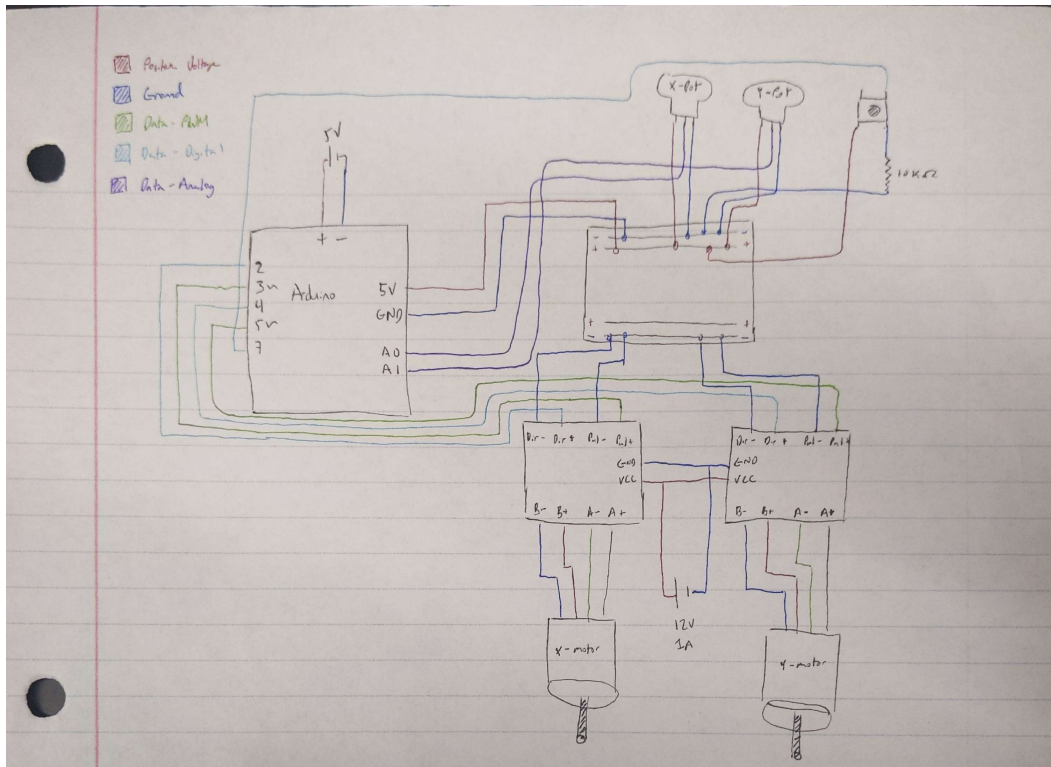 Positive Voltage
Ground
Data - PWM
Data - Digital
Data - Analog
5V
+ -
X-Pot
Y-Pot
10KΩ
Arduino
2
3~
4
5~
7
5V
GND
A0
A1
- -
+ +
+ +
- -
Dir- Dir+ Pul- Pul+
GND
VCC
B- B+ A- A+
Dir- Dir+ Pul- Pul+
GND
VCC
B- B+ A- A+
12V
1A
X-motor
Y-motor